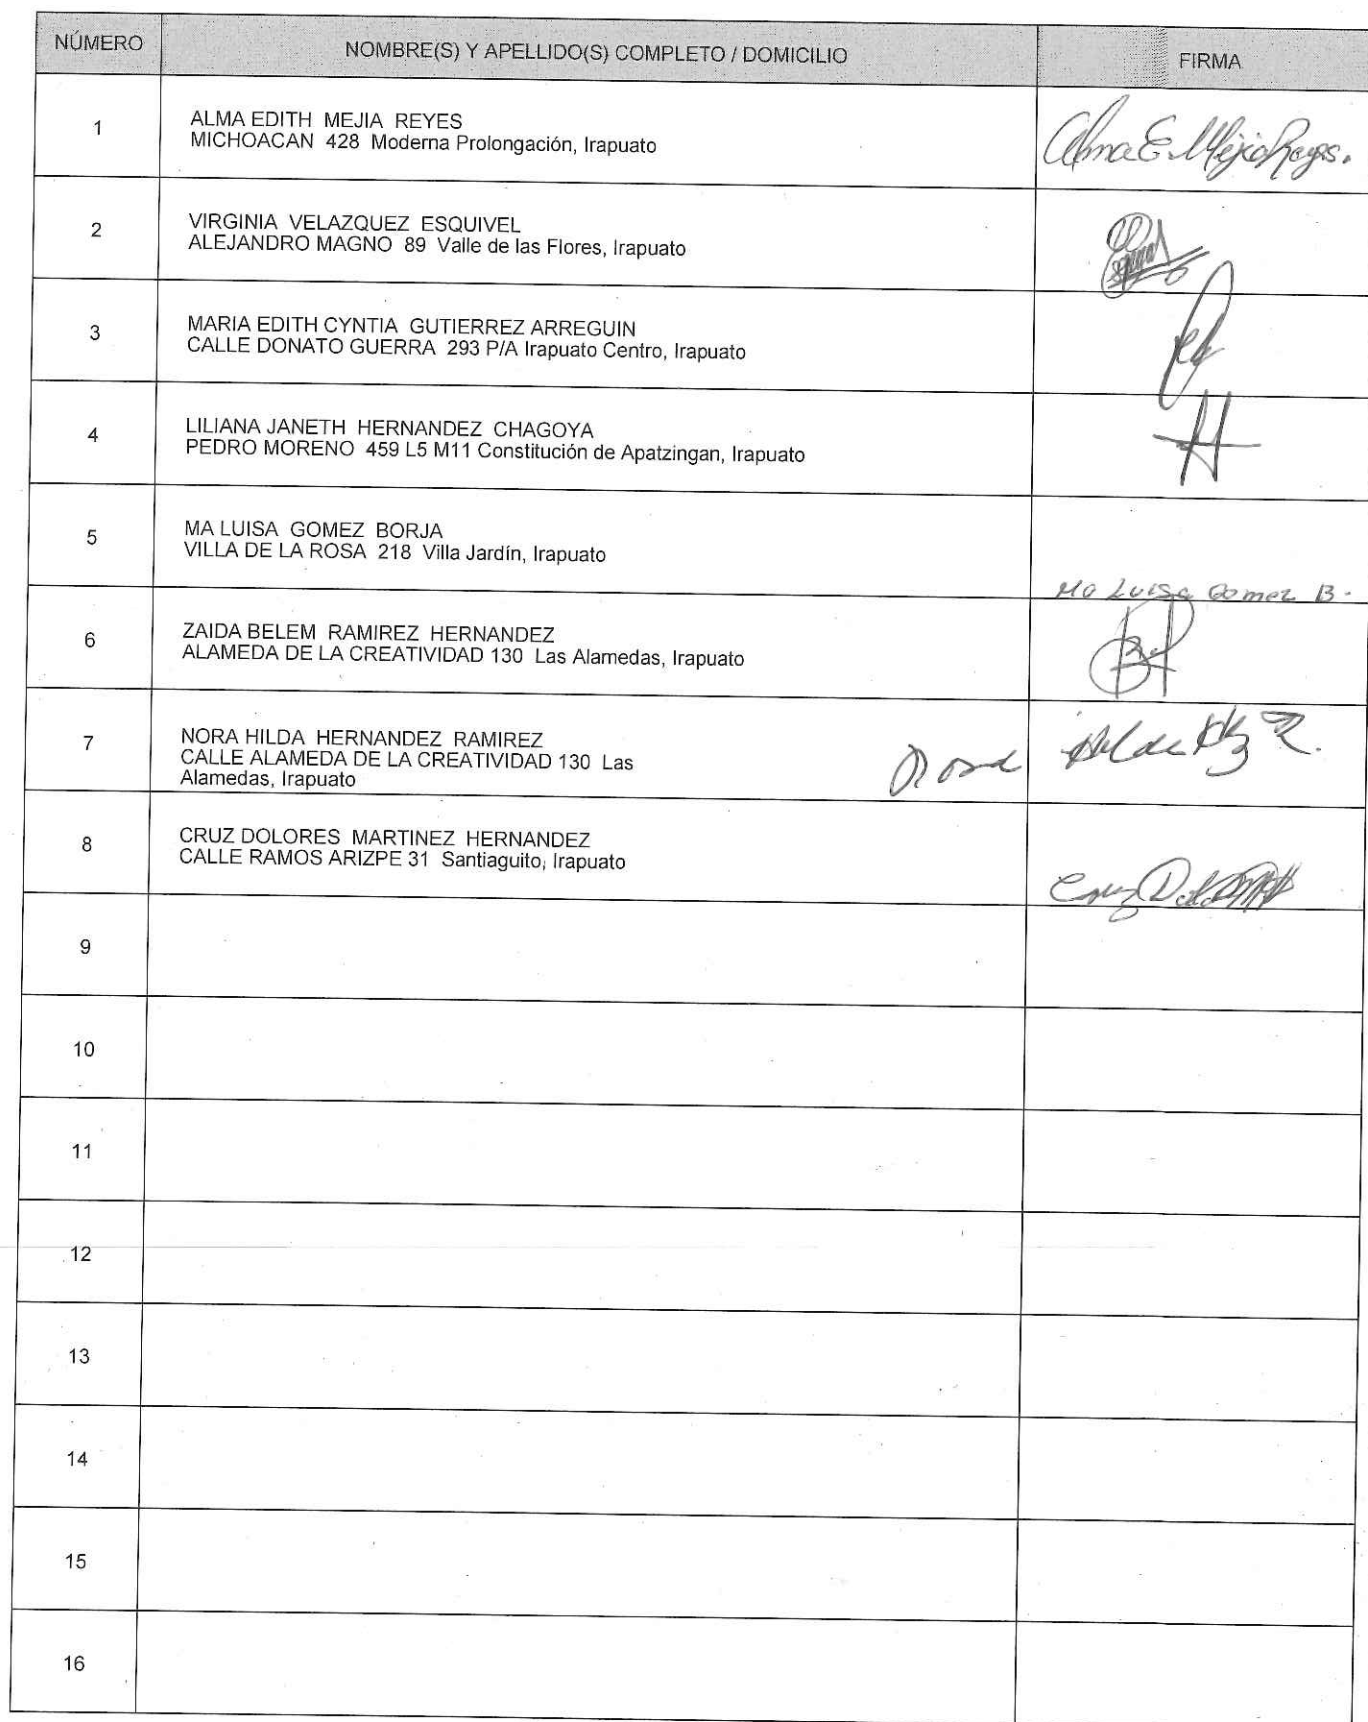 NÚMERO NOMBRE(S) Y APELLIDO(S) COMPLETO / DOMICILIO FIRMA
1 ALMA EDITH MEJIA REYES
MICHOACAN 428 Moderna Prolongación, Irapuato
Alma E. Mejia Reyes.
2 VIRGINIA VELAZQUEZ ESQUIVEL
ALEJANDRO MAGNO 89 Valle de las Flores, Irapuato
3 MARIA EDITH CYNTIA GUTIERREZ ARREGUIN
CALLE DONATO GUERRA 293 P/A Irapuato Centro, Irapuato
4 LILIANA JANETH HERNANDEZ CHAGOYA
PEDRO MORENO 459 L5 M11 Constitución de Apatzingan, Irapuato
5 MA LUISA GOMEZ BORJA
VILLA DE LA ROSA 218 Villa Jardín, Irapuato
Ma Luisa Gomez B.
6 ZAIDA BELEM RAMIREZ HERNANDEZ
ALAMEDA DE LA CREATIVIDAD 130 Las Alamedas, Irapuato
7 NORA HILDA HERNANDEZ RAMIREZ
CALLE ALAMEDA DE LA CREATIVIDAD 130 Las
Alamedas, Irapuato
Nora Hilda Hdz R.
8 CRUZ DOLORES MARTINEZ HERNANDEZ
CALLE RAMOS ARIZPE 31 Santiaguito, Irapuato
Cruz
9
10
11
12
13
14
15
16